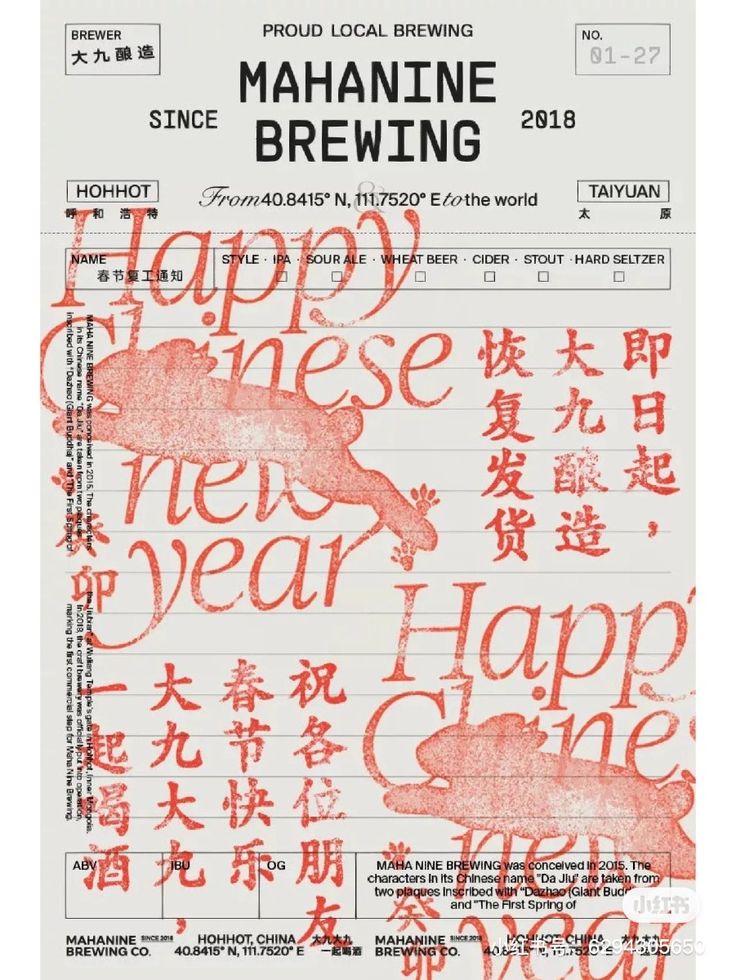 BREWER
大九酿造
PROUD LOCAL BREWING
NO.
01-27
MAHANINE
SINCE
BREWING
2018
HOHHOT
呼和浩特
From 40.8415° N, 111.7520° E to the world
&
TAIYUAN
太原
NAME
春节复工通知
STYLE · IPA · SOUR ALE · WHEAT BEER · CIDER · STOUT · HARD SELTZER
Happy
Chinese
new
year
癸卯
即日起，
大九酿造
恢复发货
MAHA NINE BREWING was conceived in 2015. The characters
in its Chinese name "Da Jiu" are taken from two plaques
inscribed with "Dazhao (Giant Buddha)" and "The First Spring of
the Jiubian" at Wuliang Temple's gate in Hohhot, Inner Mongolia.
In 2018, the craft brewery was officially put into operation,
marking the first commercial step for Maha Nine Brewing.
祝各位朋友
春节快乐
大九大九，
一起喝酒
Happy
Chines
new
year
癸卯
ABV
IBU
OG
MAHA NINE BREWING was conceived in 2015. The
characters in its Chinese name "Da Jiu" are taken from
two plaques inscribed with "Dazhao (Giant Budd
and "The First Spring of
MAHANINE
BREWING CO.
SINCE 2018
HOHHOT, CHINA
40.8415° N, 111.7520° E
大九大九
一起喝酒
MAHANINE
BREWING CO.
SINCE 2018
HOHHOT, CHINA
40.8415° N, 111.7520° E
大九大九
小红书
小红书号：6294305650